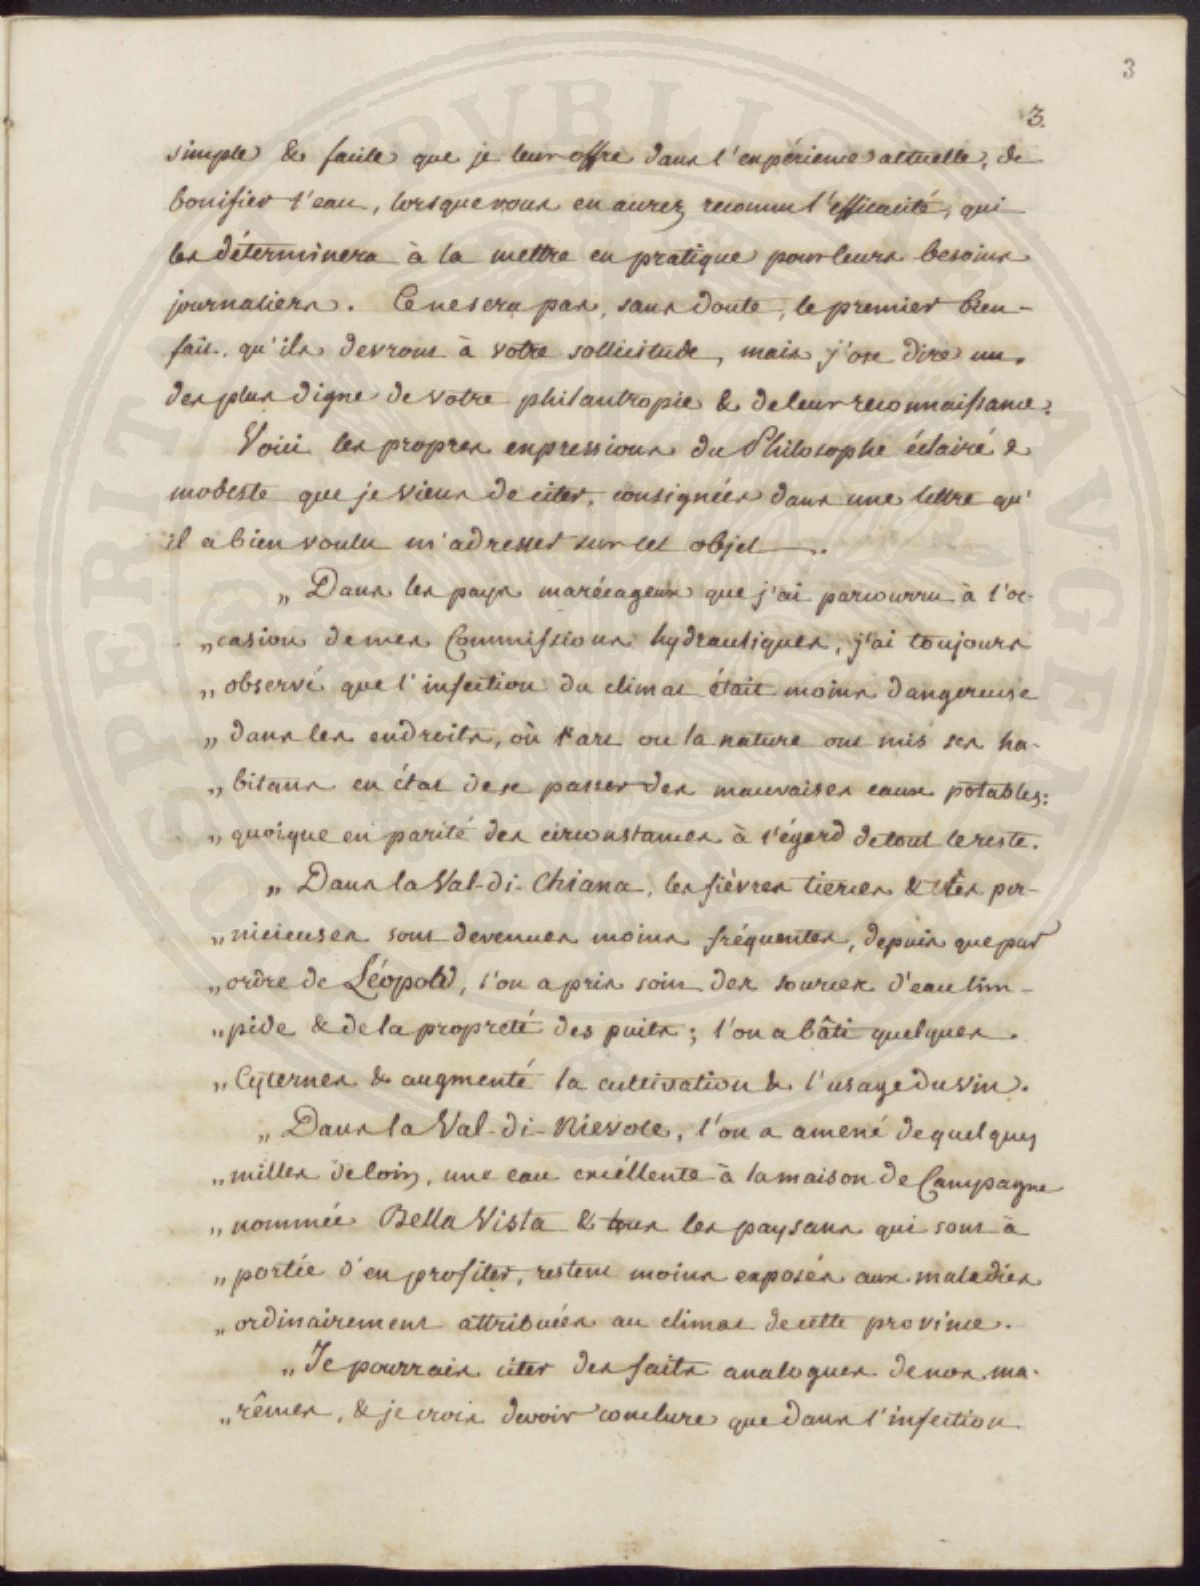 3
3.
simple & facile que je leur offre dans l'expérience actuelle, de
bonifier l'eau, lorsque vous en aurez reconnu l'efficacité, qui
les déterminera à la mettre en pratique pour leurs besoins
journaliers. Ce ne sera pas, sans doute, le premier bien-
fait, qu'ils devront à votre sollicitude, mais j'ose dire un
des plus digne de votre philantropie & de leur reconnaissance.
Voici les propres expressions du Philosophe éclairé &
modeste que je viens de citer, consignées dans une lettre qu'
il a bien voulu m'adresser sur cet objet —.
„ Dans les pays marécageux que j'ai parcourru à l'oc-
„ casion de mes Commissions hydrauliques, j'ai toujours
„ observé que l'infection du climat était moins dangereuse
„ dans les endroits, où l'art ou la nature ont mis ses ha-
„ bitans en état de se passer des mauvaises eaux potables:
„ quoique en parité des circonstances à l'égard de tout le reste.
„ Dans la Val-di-Chiana, les fièvres tierces & les per-
„ nicieuses sont devenues moins fréquentes, depuis que par
„ ordre de Léopold, l'on a pris soin des sources d'eau lim-
„ pide & de la propreté des puits; l'on a bâti quelques
„ Cyternes & augmenté la cultivation & l'usage du vin.
„ Dans la Val-di-Nievole, l'on a amené de quelques
„ milles de loin, une eau excéllente à la maison de Campagne
„ nommée Bella Vista & tous les paysans qui sont à
„ portée d'en profiter, restent moins exposés aux maladies
„ ordinairement attribuées au climat de cette province.
„ Je pourrais citer des faits analogues de nos ma-
„ rêmes, & je crois devoir conclure que dans l'infection
SOSPERITAS PVBLICA AVGENDA